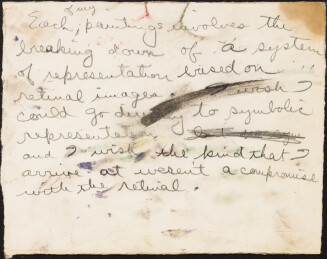 of my
Each, paintings involves the
breaking down of a system
of representation based on
retinal images. I wish I
could go directly to symbolic
representation
and I wish the kind that I
arrive at wesen't a compromise
with the retinal.